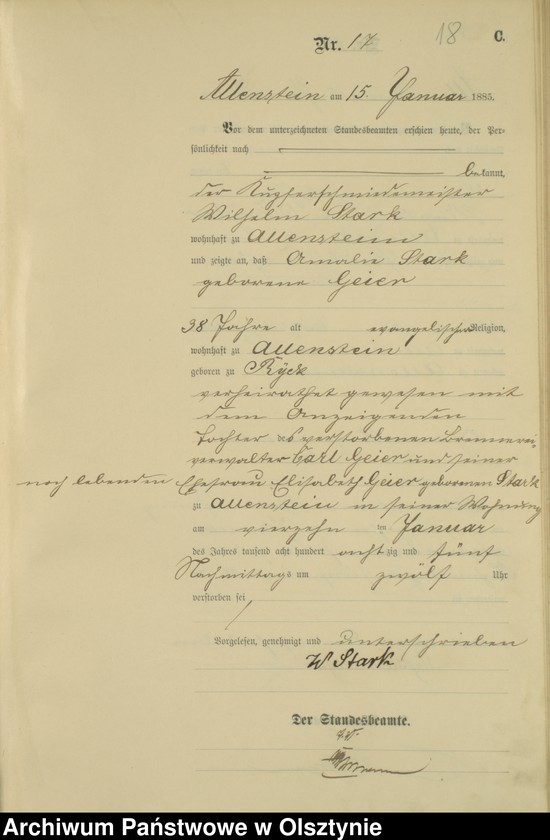 18
C.
Nr. 17
Allenstein am 15. Januar 1885.
Vor dem unterzeichneten Standesbeamten erschien heute, der Per-
sönlichkeit nach
bekannt,
der Kupferschmiedemeister
Wilhelm Stark
wohnhaft zu Allenstein
und zeigte an, daß Amalie Stark
geborene Geier
38 Jahre alt evangelischer Religion,
wohnhaft zu Allenstein
geboren zu
verheirathet gewesen mit
dem Anzeigenden
Tochter des verstorbenen Brennerei-
verwalter Carl Geier und seiner
noch lebenden Ehefrau Elisabeth Geier geborenen Stark
zu Allenstein in seiner Wohnung
am vierzehn ten Januar
des Jahres tausend acht hundert acht zig und fünf
Nachmittags um zwölf Uhr
verstorben sei
Vorgelesen, genehmigt und unterschrieben
W Stark
Der Standesbeamte.
Archiwum Państwowe w Olsztynie